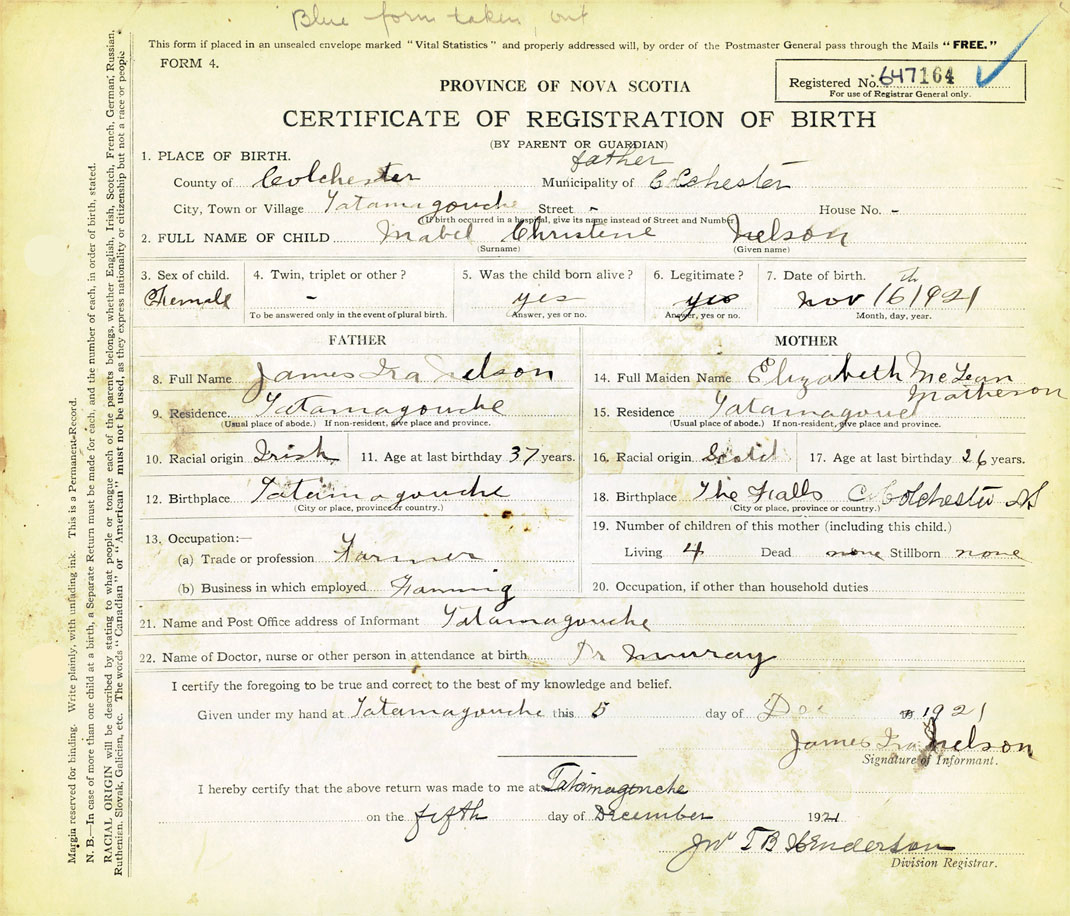 Blue form taken out
This form if placed in an unsealed envelope marked "Vital Statistics" and properly addressed will, by order of the Postmaster General pass through the Mails "FREE."
FORM 4.
Registered No. 647164
For use of Registrar General only.
PROVINCE OF NOVA SCOTIA
CERTIFICATE OF REGISTRATION OF BIRTH
(BY PARENT OR GUARDIAN)
father
1. PLACE OF BIRTH.
County of Colchester Municipality of Colchester
City, Town or Village Tatamagouche Street - House No. -
(If birth occurred in a hospital, give its name instead of Street and Number)
2. FULL NAME OF CHILD Mabel Christine Nelson
(Surname) (Given name)
3. Sex of child. 4. Twin, triplet or other? 5. Was the child born alive? 6. Legitimate? 7. Date of birth.
Female - yes yes Nov 16th 1921
To be answered only in the event of plural birth. Answer, yes or no. Answer, yes or no. Month, day, year.
FATHER MOTHER
8. Full Name James Ira Nelson 14. Full Maiden Name Elizabeth McLean Matheson
9. Residence Tatamagouche 15. Residence Tatamagouc
(Usual place of abode.) If non-resident, give place and province. (Usual place of abode.) If non-resident, give place and province.
10. Racial origin Irish 11. Age at last birthday 37 years. 16. Racial origin 17. Age at last birthday 26 years.
12. Birthplace Tatamagouche 18. Birthplace The Falls Colchester NS
(City or place, province or country.) (City or place, province or country.)
19. Number of children of this mother (including this child.)
13. Occupation:—
(a) Trade or profession Farmer Living 4 Dead none Stillborn none
(b) Business in which employed Farming 20. Occupation, if other than household duties
21. Name and Post Office address of Informant Tatamagouche
22. Name of Doctor, nurse or other person in attendance at birth Dr Murray
I certify the foregoing to be true and correct to the best of my knowledge and belief.
Given under my hand at Tatamagouche this 5 day of Dec 1921
James Ira Nelson
Signature of Informant.
I hereby certify that the above return was made to me at Tatamagouche
on the fifth day of December 1921
Jno T B Henderson
Division Registrar.
Margin reserved for binding. Write plainly, with unfading ink. This is a Permanent Record.
N. B.—In case of more than one child at a birth, a Separate Return must be made for each, and the number of each, in order of birth, stated.
RACIAL ORIGIN will be described by stating to what people or tongue each of the parents belongs, whether English, Irish, Scotch, French, German, Russian,
Ruthenian, Slovak, Galician, etc. The words "Canadian" or "American" must not be used, as they express nationality or citizenship but not a race or people.